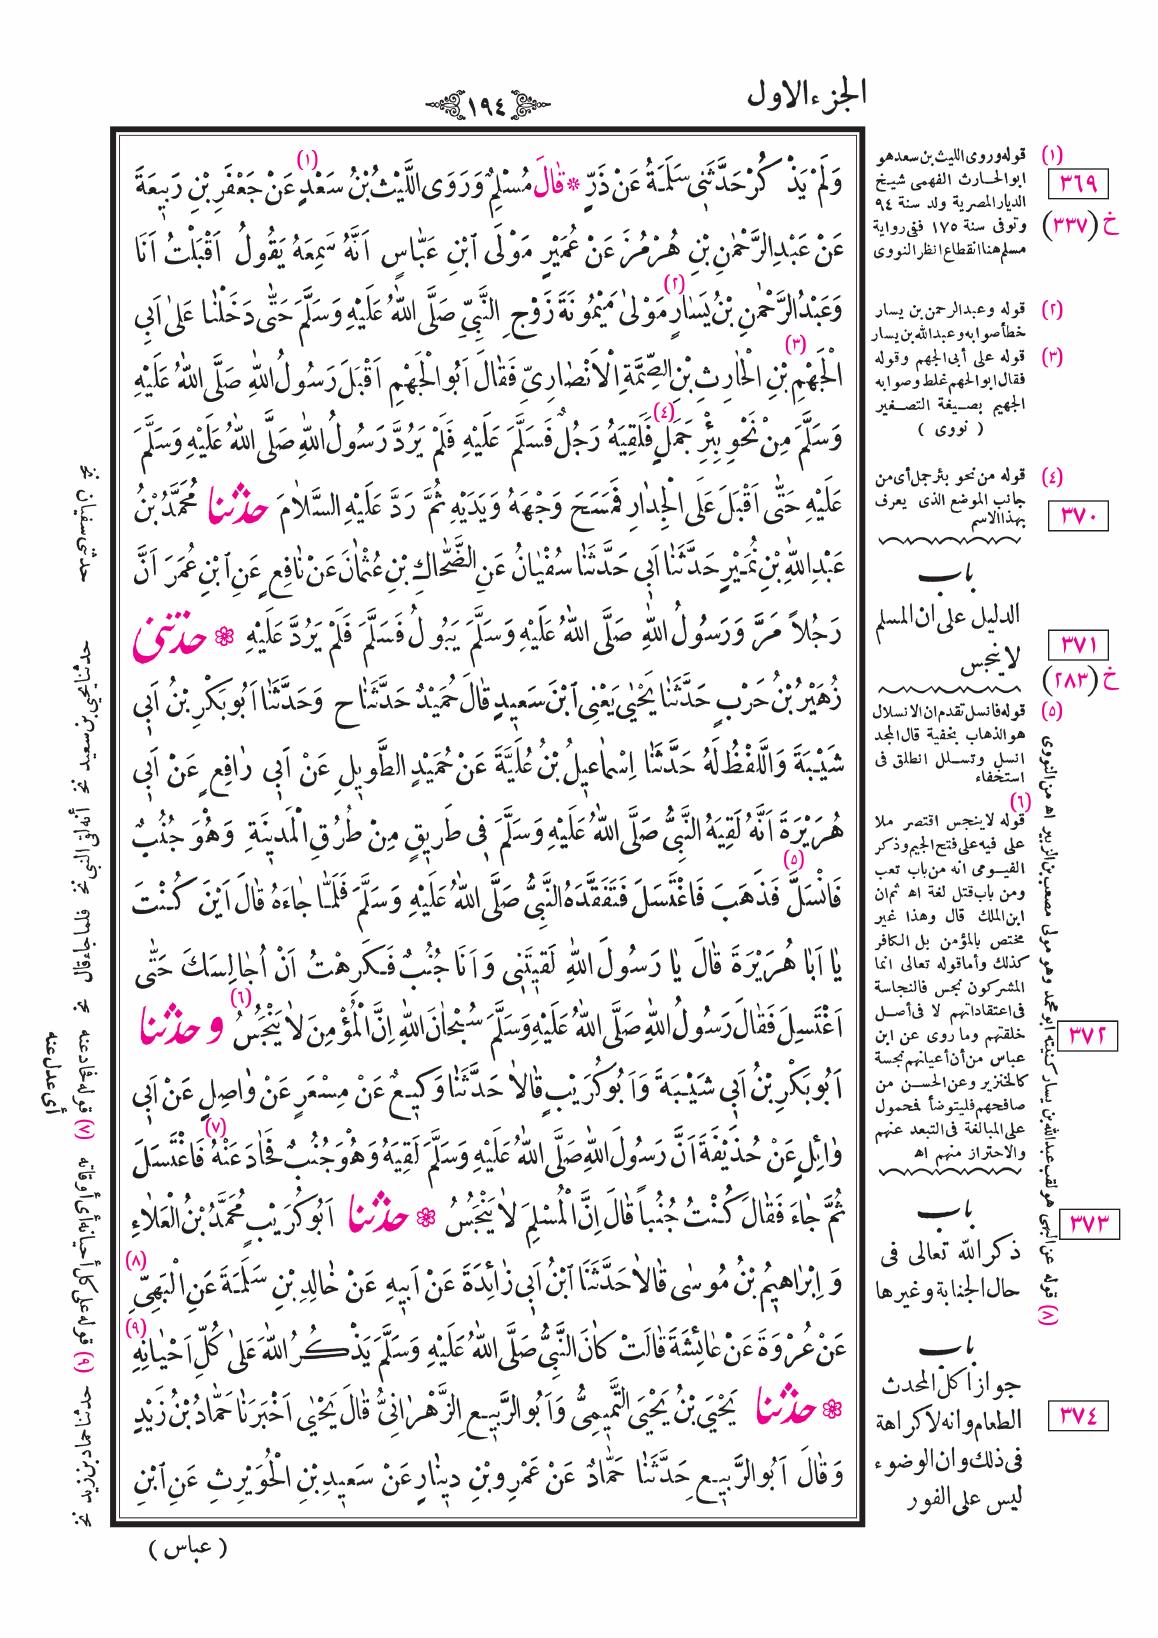 الجزء الاول
١٩٤
وَلَمْ يَذْكُرْ حَدَّثَنِي سَلَمَةُ عَنْ ذَرٍّ * قَالَ مُسْلِمٌ وَرَوَى اللَّيْثُ بْنُ سَعْدٍ (١) عَنْ جَعْفَرِ بْنِ رَبِيعَةَ
عَنْ عَبْدِ الرَّحْمٰنِ بْنِ هُرْمُزَ عَنْ عُمَيْرٍ مَوْلَى ابْنِ عَبَّاسٍ اَنَّهُ سَمِعَهُ يَقُولُ اَقْبَلْتُ اَنَا
وَعَبْدُ الرَّحْمٰنِ بْنُ يَسَارٍ (٢) مَوْلَى مَيْمُونَةَ زَوْجِ النَّبِيِّ صَلَّى اللّٰهُ عَلَيْهِ وَسَلَّمَ حَتَّى دَخَلْنَا عَلَى اَبِي
الْجَهْمِ (٣) بْنِ الْحَارِثِ بْنِ الصِّمَّةِ الْاَنْصَارِيِّ فَقَالَ اَبُو الْجَهْمِ اَقْبَلَ رَسُولُ اللّٰهِ صَلَّى اللّٰهُ عَلَيْهِ
وَسَلَّمَ مِنْ نَحْوِ بِئْرِ جَمَلٍ (٤) فَلَقِيَهُ رَجُلٌ فَسَلَّمَ عَلَيْهِ فَلَمْ يَرُدَّ رَسُولُ اللّٰهِ صَلَّى اللّٰهُ عَلَيْهِ وَسَلَّمَ
عَلَيْهِ حَتَّى اَقْبَلَ عَلَى الْجِدَارِ فَمَسَحَ وَجْهَهُ وَيَدَيْهِ ثُمَّ رَدَّ عَلَيْهِ السَّلَامَ حدثنا مُحَمَّدُ بْنُ
عَبْدِ اللّٰهِ بْنِ نُمَيْرٍ حَدَّثَنَا اَبِي حَدَّثَنَا سُفْيَانُ عَنِ الضَّحَّاكِ بْنِ عُثْمَانَ عَنْ نَافِعٍ عَنِ ابْنِ عُمَرَ اَنَّ
رَجُلاً مَرَّ وَرَسُولُ اللّٰهِ صَلَّى اللّٰهُ عَلَيْهِ وَسَلَّمَ يَبُولُ فَسَلَّمَ فَلَمْ يَرُدَّ عَلَيْهِ * حدثنى
زُهَيْرُ بْنُ حَرْبٍ حَدَّثَنَا يَحْيَى يَعْنِي ابْنَ سَعِيدٍ قَالَ حُمَيْدٌ حَدَّثَنَا ح وَحَدَّثَنَا اَبُو بَكْرِ بْنُ اَبِي
شَيْبَةَ وَاللَّفْظُ لَهُ حَدَّثَنَا اِسْمَاعِيلُ بْنُ عُلَيَّةَ عَنْ حُمَيْدٍ الطَّوِيلِ عَنْ اَبِي رَافِعٍ عَنْ اَبِي
هُرَيْرَةَ اَنَّهُ لَقِيَهُ النَّبِيُّ صَلَّى اللّٰهُ عَلَيْهِ وَسَلَّمَ فِي طَرِيقٍ مِنْ طُرُقِ الْمَدِينَةِ وَهُوَ جُنُبٌ
فَانْسَلَّ (٥) فَذَهَبَ فَاغْتَسَلَ فَتَفَقَّدَهُ النَّبِيُّ صَلَّى اللّٰهُ عَلَيْهِ وَسَلَّمَ فَلَمَّا جَاءَهُ قَالَ اَيْنَ كُنْتَ
يَا اَبَا هُرَيْرَةَ قَالَ يَا رَسُولَ اللّٰهِ لَقِيتَنِي وَاَنَا جُنُبٌ فَكَرِهْتُ اَنْ اُجَالِسَكَ حَتَّى
اَغْتَسِلَ فَقَالَ رَسُولُ اللّٰهِ صَلَّى اللّٰهُ عَلَيْهِ وَسَلَّمَ سُبْحَانَ اللّٰهِ اِنَّ الْمُؤْمِنَ لَا يَنْجُسُ (٦) وحدثنا
اَبُو بَكْرِ بْنُ اَبِي شَيْبَةَ وَاَبُو كُرَيْبٍ قَالَا حَدَّثَنَا وَكِيعٌ عَنْ مِسْعَرٍ عَنْ وَاصِلٍ عَنْ اَبِي
وَائِلٍ عَنْ حُذَيْفَةَ اَنَّ رَسُولَ اللّٰهِ صَلَّى اللّٰهُ عَلَيْهِ وَسَلَّمَ لَقِيَهُ وَهُوَ جُنُبٌ فَحَادَ عَنْهُ (٧) فَاغْتَسَلَ
ثُمَّ جَاءَ فَقَالَ كُنْتُ جُنُباً قَالَ اِنَّ الْمُسْلِمَ لَا يَنْجُسُ * حدثنا اَبُو كُرَيْبٍ مُحَمَّدُ بْنُ الْعَلَاءِ
وَاِبْرَاهِيمُ بْنُ مُوسَى قَالَا حَدَّثَنَا ابْنُ اَبِي زَائِدَةَ عَنْ اَبِيهِ عَنْ خَالِدِ بْنِ سَلَمَةَ عَنِ الْبَهِيِّ (٨)
عَنْ عُرْوَةَ عَنْ عَائِشَةَ قَالَتْ كَانَ النَّبِيُّ صَلَّى اللّٰهُ عَلَيْهِ وَسَلَّمَ يَذْكُرُ اللّٰهَ عَلَى كُلِّ اَحْيَانِهِ (٩)
* حدثنا يَحْيَى بْنُ يَحْيَى التَّمِيمِيُّ وَاَبُو الرَّبِيعِ الزَّهْرَانِيُّ قَالَ يَحْيَى اَخْبَرَنَا حَمَّادُ بْنُ زَيْدٍ
وَقَالَ اَبُو الرَّبِيعِ حَدَّثَنَا حَمَّادٌ عَنْ عَمْرِو بْنِ دِينَارٍ عَنْ سَعِيدِ بْنِ الْحُوَيْرِثِ عَنِ ابْنِ
( عباس )
(١) قوله وروى الليث بن سعد هو
ابو الحارث الفهمى شيخ
الديار المصرية ولد سنة ٩٤
وتوفى سنة ١٧٥ ففى رواية
مسلم هنا انقطاع انظر النووى
٣٦٩
خ (٣٣٧)
(٢) قوله وعبد الرحمن بن يسار
خطأ صوابه وعبد الله بن يسار
(٣) قوله على أبى الجهم وقوله
فقال ابو الجهم غلط وصوابه
الجهيم بصيغة التصغير
( نووى )
(٤) قوله من نحو بئر جمل أى من
جانب الموضع الذى يعرف
بهذا الاسم
٣٧٠
باب
الدليل على ان المسلم
لا ينجس
٣٧١
خ (٢٨٣)
(٥) قوله فانسل تقدم ان الانسلال
هو الذهاب بخفية قال المجد
انسل وتسلل انطلق فى
استخفاء
(٦)
قوله لا ينجس اقتصر ملا
على فيه على فتح الجيم وذكر
الفيومى انه من باب تعب
ومن باب قتل لغة اه ثم ان
ابن الملك قال وهذا غير
مختص بالمؤمن بل الكافر
كذلك وأما قوله تعالى انما
المشركون نجس فالنجاسة
فى اعتقاداتهم لا فى أصل
خلقتهم وما روى عن ابن
عباس من أن أعيانهم نجسة
كالخنزير وعن الحسن من
صافحهم فليتوضأ فمحمول
على المبالغة فى التبعد عنهم
والاحتراز منهم اه
٣٧٢
باب
ذكر الله تعالى فى
حال الجنابة وغيرها
٣٧٣
باب
جواز أكل المحدث
الطعام وانه لا كراهة
فى ذلك وان الوضوء
ليس على الفور
٣٧٤
(٨) قوله عن البهى هو لقب عبد الله بن يسار كنيته ابو محمد وهو مولى مصعب بن الزبير اه من النووى
حدثنى سفيان نخ
حدثنا يحيى بن سعيد نخ أنه لقى النبى نخ فلما جاء قال نخ (٧) قوله فحاد عنه
أى عدل عنه
(٩) قوله على كل أحيانه أى أوقاته
حدثنا حماد بن زيد نخ